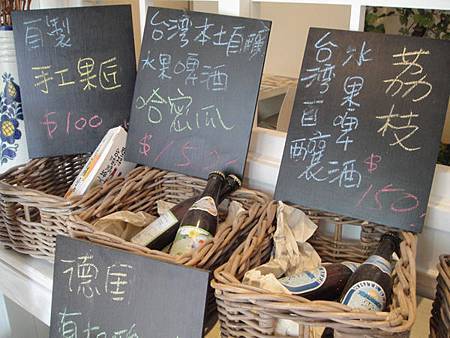 自製
手工果匠
$100
台灣本土自釀
水果啤酒
哈密瓜
$150
台灣自釀
水果啤酒
荔枝
$150
德国